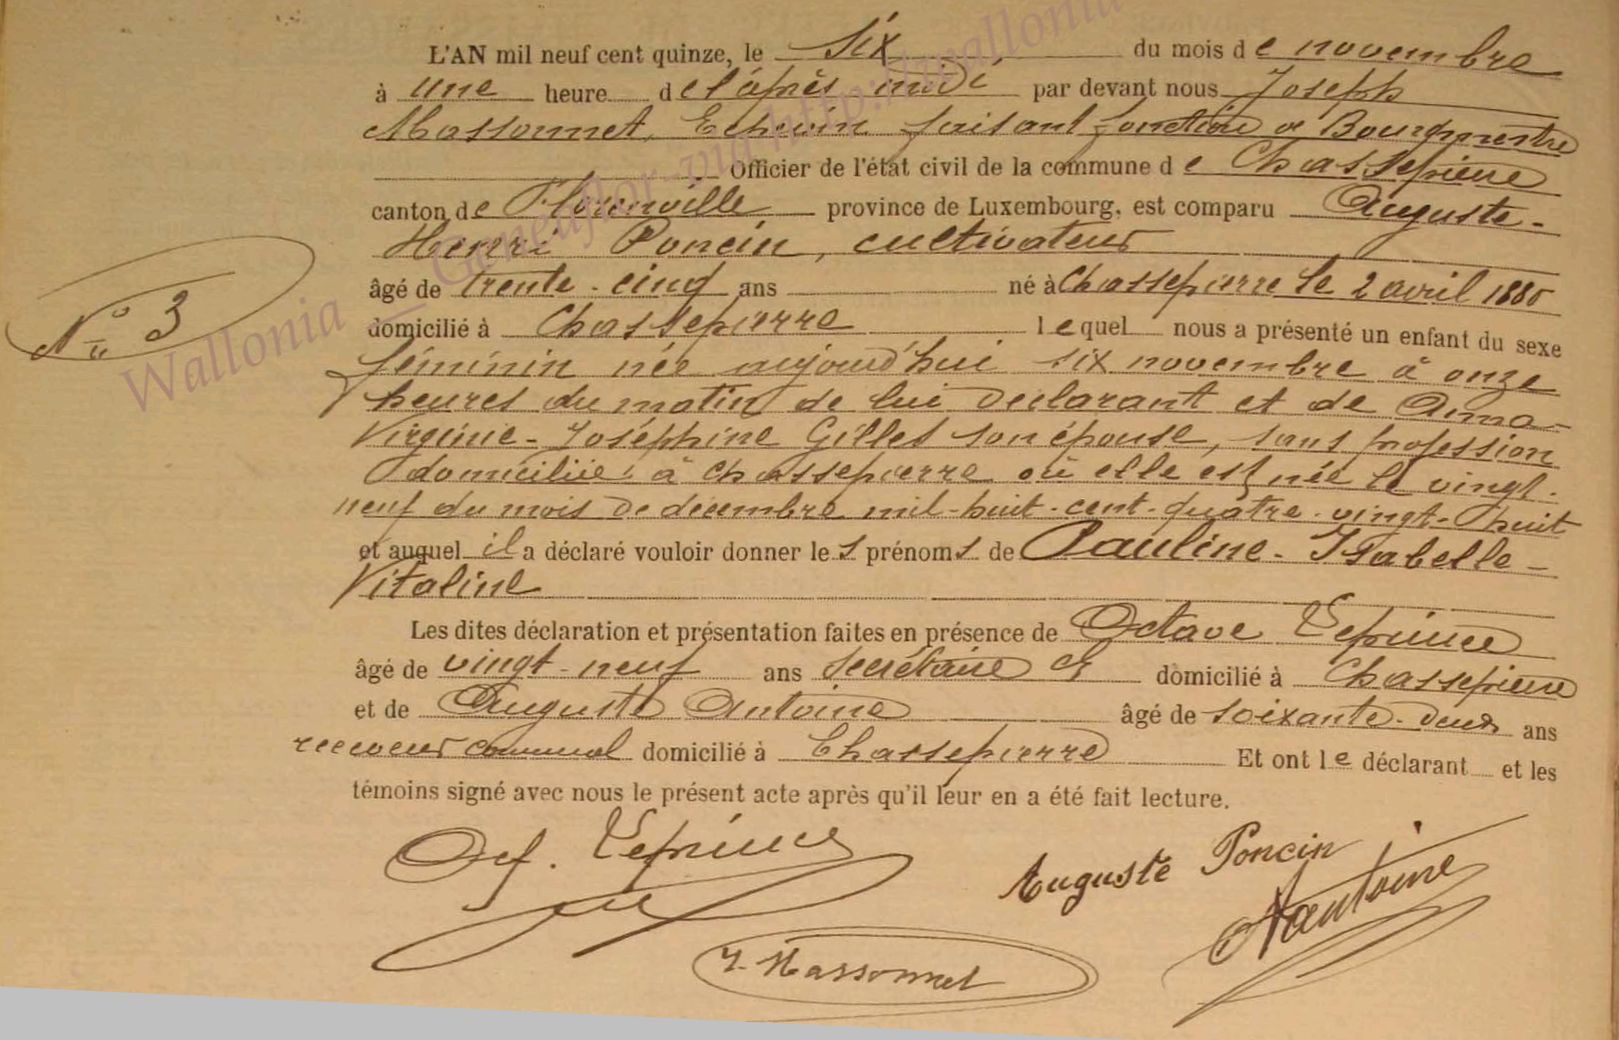 L'AN mil neuf cent quinze, le six du mois de novembre
à une heure de l'après midi par devant nous Joseph
Massonnet, Echevin faisant fonction de Bourgmestre
Officier de l'état civil de la commune de Chassepierre
canton de Florenville province de Luxembourg, est comparu Auguste-
Henri Poncin, cultivateur
âgé de trente-cinq ans né à Chassepierre le 2 avril 1880
N° 3
domicilié à Chassepierre lequel nous a présenté un enfant du sexe
féminin née aujourd'hui six novembre à onze
heures du matin de lui déclarant et de Anna-
Virginie-Joséphine Gilles son épouse, sans profession
domiciliée à Chassepierre où elle est née le vingt-
neuf du mois de décembre mil-huit-cent-quatre-vingt-huit
et auquel il a déclaré vouloir donner les prénoms de Pauline-Isabelle-
Vitaline
Les dites déclaration et présentation faites en présence de Octave Leprince
âgé de vingt-neuf ans secrétaire domicilié à Chassepierre
et de Auguste Antoine âgé de soixante-deux ans
receveur communal domicilié à Chassepierre Et ont le déclarant et les
témoins signé avec nous le présent acte après qu'il leur en a été fait lecture.
Oct. Leprince
Auguste Poncin
Aantoine
J. Massonnet
Wallonia _ Geneaflor-via http://wallonia